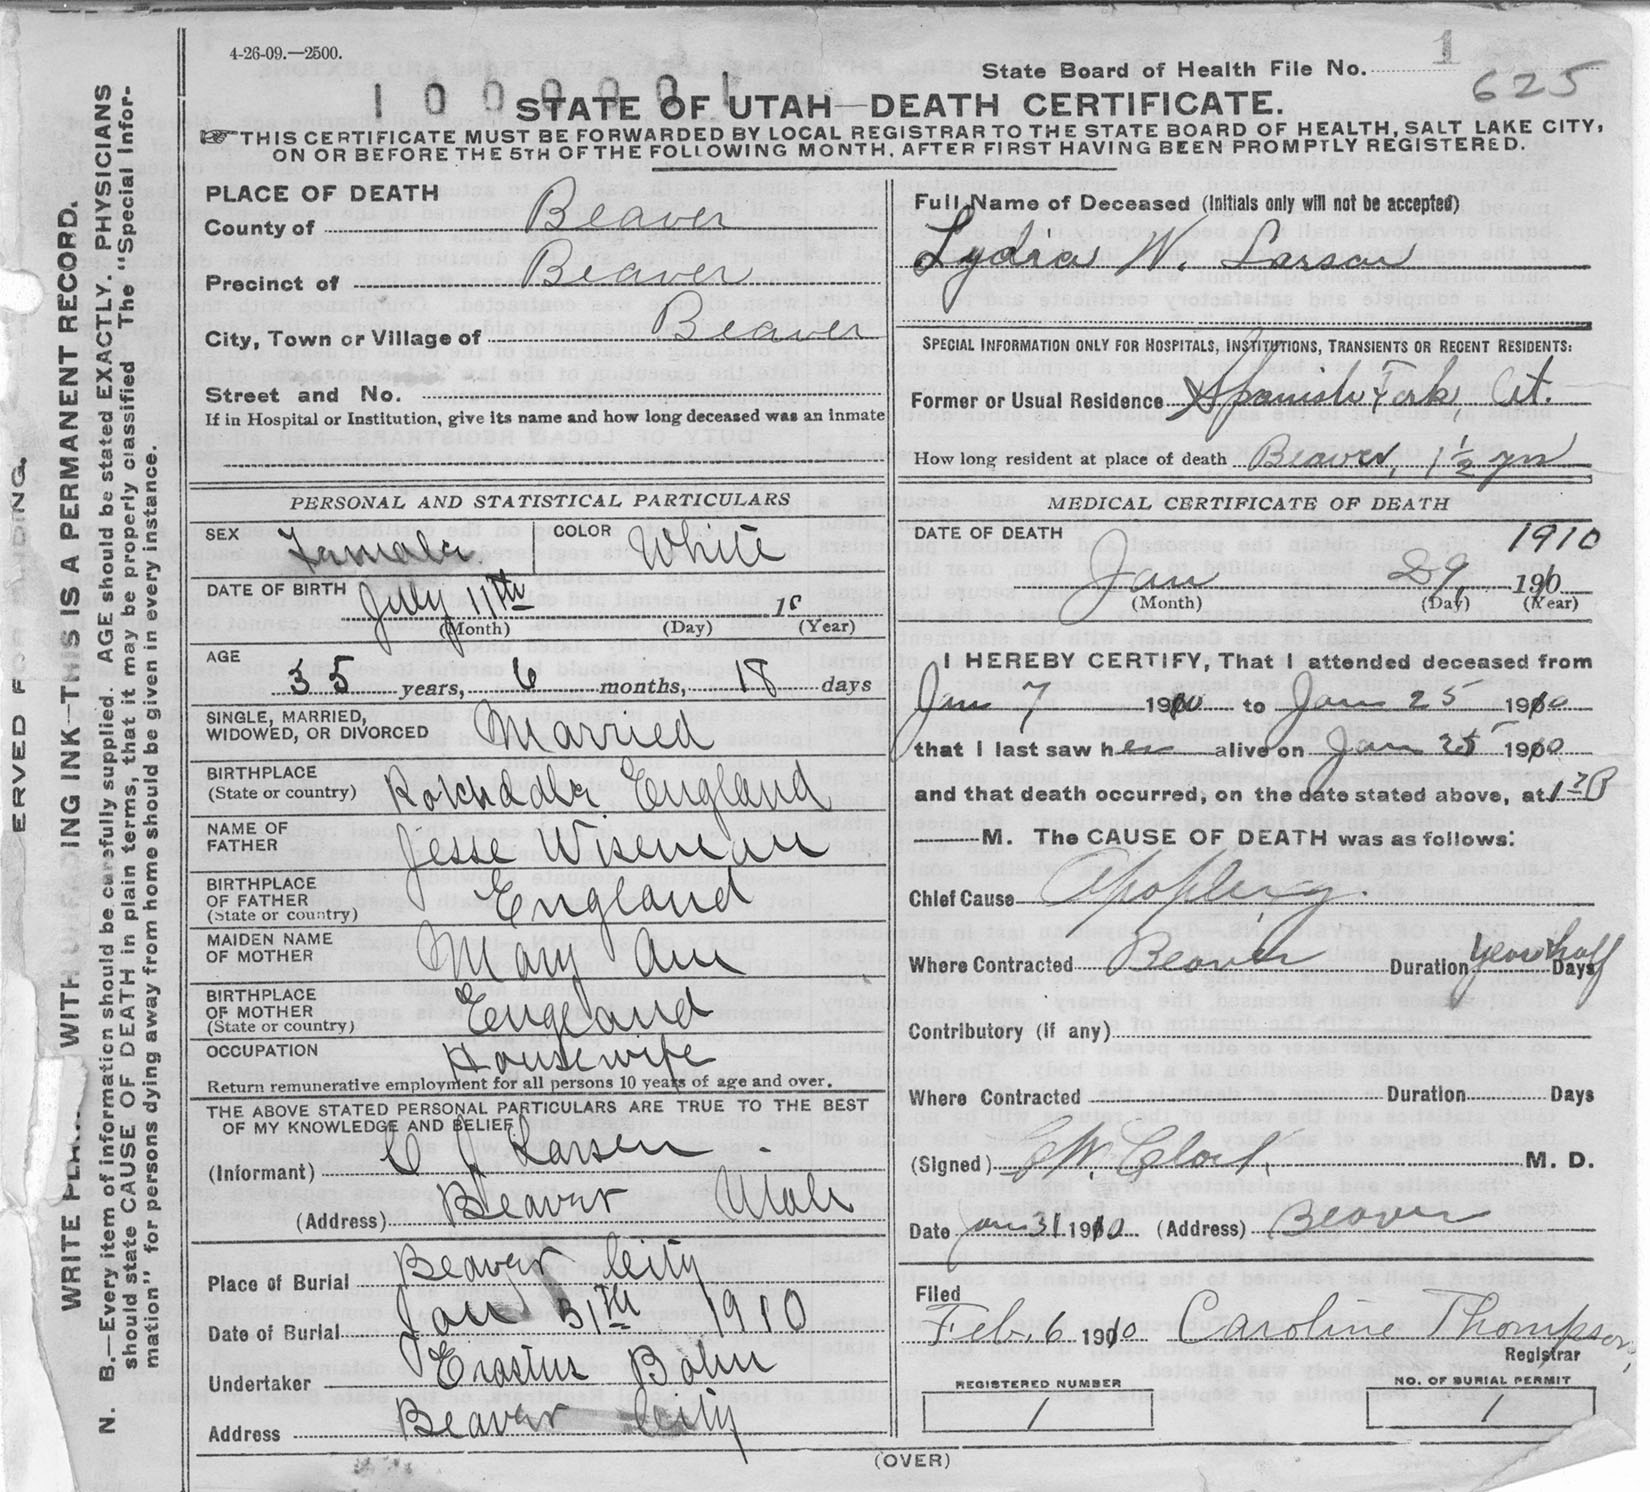 4-26-09.—2500.
State Board of Health File No. 1
625
1000001
STATE OF UTAH—DEATH CERTIFICATE.
THIS CERTIFICATE MUST BE FORWARDED BY LOCAL REGISTRAR TO THE STATE BOARD OF HEALTH, SALT LAKE CITY,
ON OR BEFORE THE 5TH OF THE FOLLOWING MONTH, AFTER FIRST HAVING BEEN PROMPTLY REGISTERED.
PLACE OF DEATH
County of Beaver
Precinct of Beaver
City, Town or Village of Beaver
Street and No.
If in Hospital or Institution, give its name and how long deceased was an inmate
Full Name of Deceased (Initials only will not be accepted)
Lydia W. Larson
SPECIAL INFORMATION ONLY FOR HOSPITALS, INSTITUTIONS, TRANSIENTS OR RECENT RESIDENTS:
Former or Usual Residence Spanish Fork, Ut.
How long resident at place of death Beaver, 1½ yrs
PERSONAL AND STATISTICAL PARTICULARS
SEX Female COLOR White
DATE OF BIRTH July 11th 1
(Month) (Day) (Year)
AGE
35 years, 6 months, 18 days
SINGLE, MARRIED,
WIDOWED, OR DIVORCED Married
BIRTHPLACE
(State or country) Rokhdale England
NAME OF
FATHER Jesse Wiseman
BIRTHPLACE
OF FATHER
(State or country) England
MAIDEN NAME
OF MOTHER Mary Ann
BIRTHPLACE
OF MOTHER
(State or country) England
OCCUPATION Housewife
Return remunerative employment for all persons 10 years of age and over.
THE ABOVE STATED PERSONAL PARTICULARS ARE TRUE TO THE BEST
OF MY KNOWLEDGE AND BELIEF
(Informant) C J Larsen
(Address) Beaver Utah
Place of Burial Beaver City
Date of Burial Jan 31th 1910
Undertaker Erastus Bohn
Address Beaver City
MEDICAL CERTIFICATE OF DEATH
DATE OF DEATH 1910
Jan 29, 1910
(Month) (Day) (Year)
I HEREBY CERTIFY, That I attended deceased from
Jan 7 1910 to Jan 25 1910
that I last saw her alive on Jan 25 1910
and that death occurred, on the date stated above, at
M. The CAUSE OF DEATH was as follows:
Chief Cause Apoplexy.
Where Contracted Beaver Duration year & half Days
Contributory (if any)
Where Contracted Duration Days
(Signed) C W. M. D.
Date Jan 31 1910 (Address) Beaver
Filed
Feb. 6 1910 Caroline Thompson,
Registrar
REGISTERED NUMBER
1
NO. OF BURIAL PERMIT
1
(OVER)
ERVED F DING.
WRITE PLA WITH ING INK—THIS IS A PERMANENT RECORD.
N. B.—Every item of information should be carefully supplied. AGE should be stated EXACTLY. PHYSICIANS
should state CAUSE OF DEATH in plain terms, that it may be properly classified The "Special Infor-
mation" for persons dying away from home should be given in every instance.